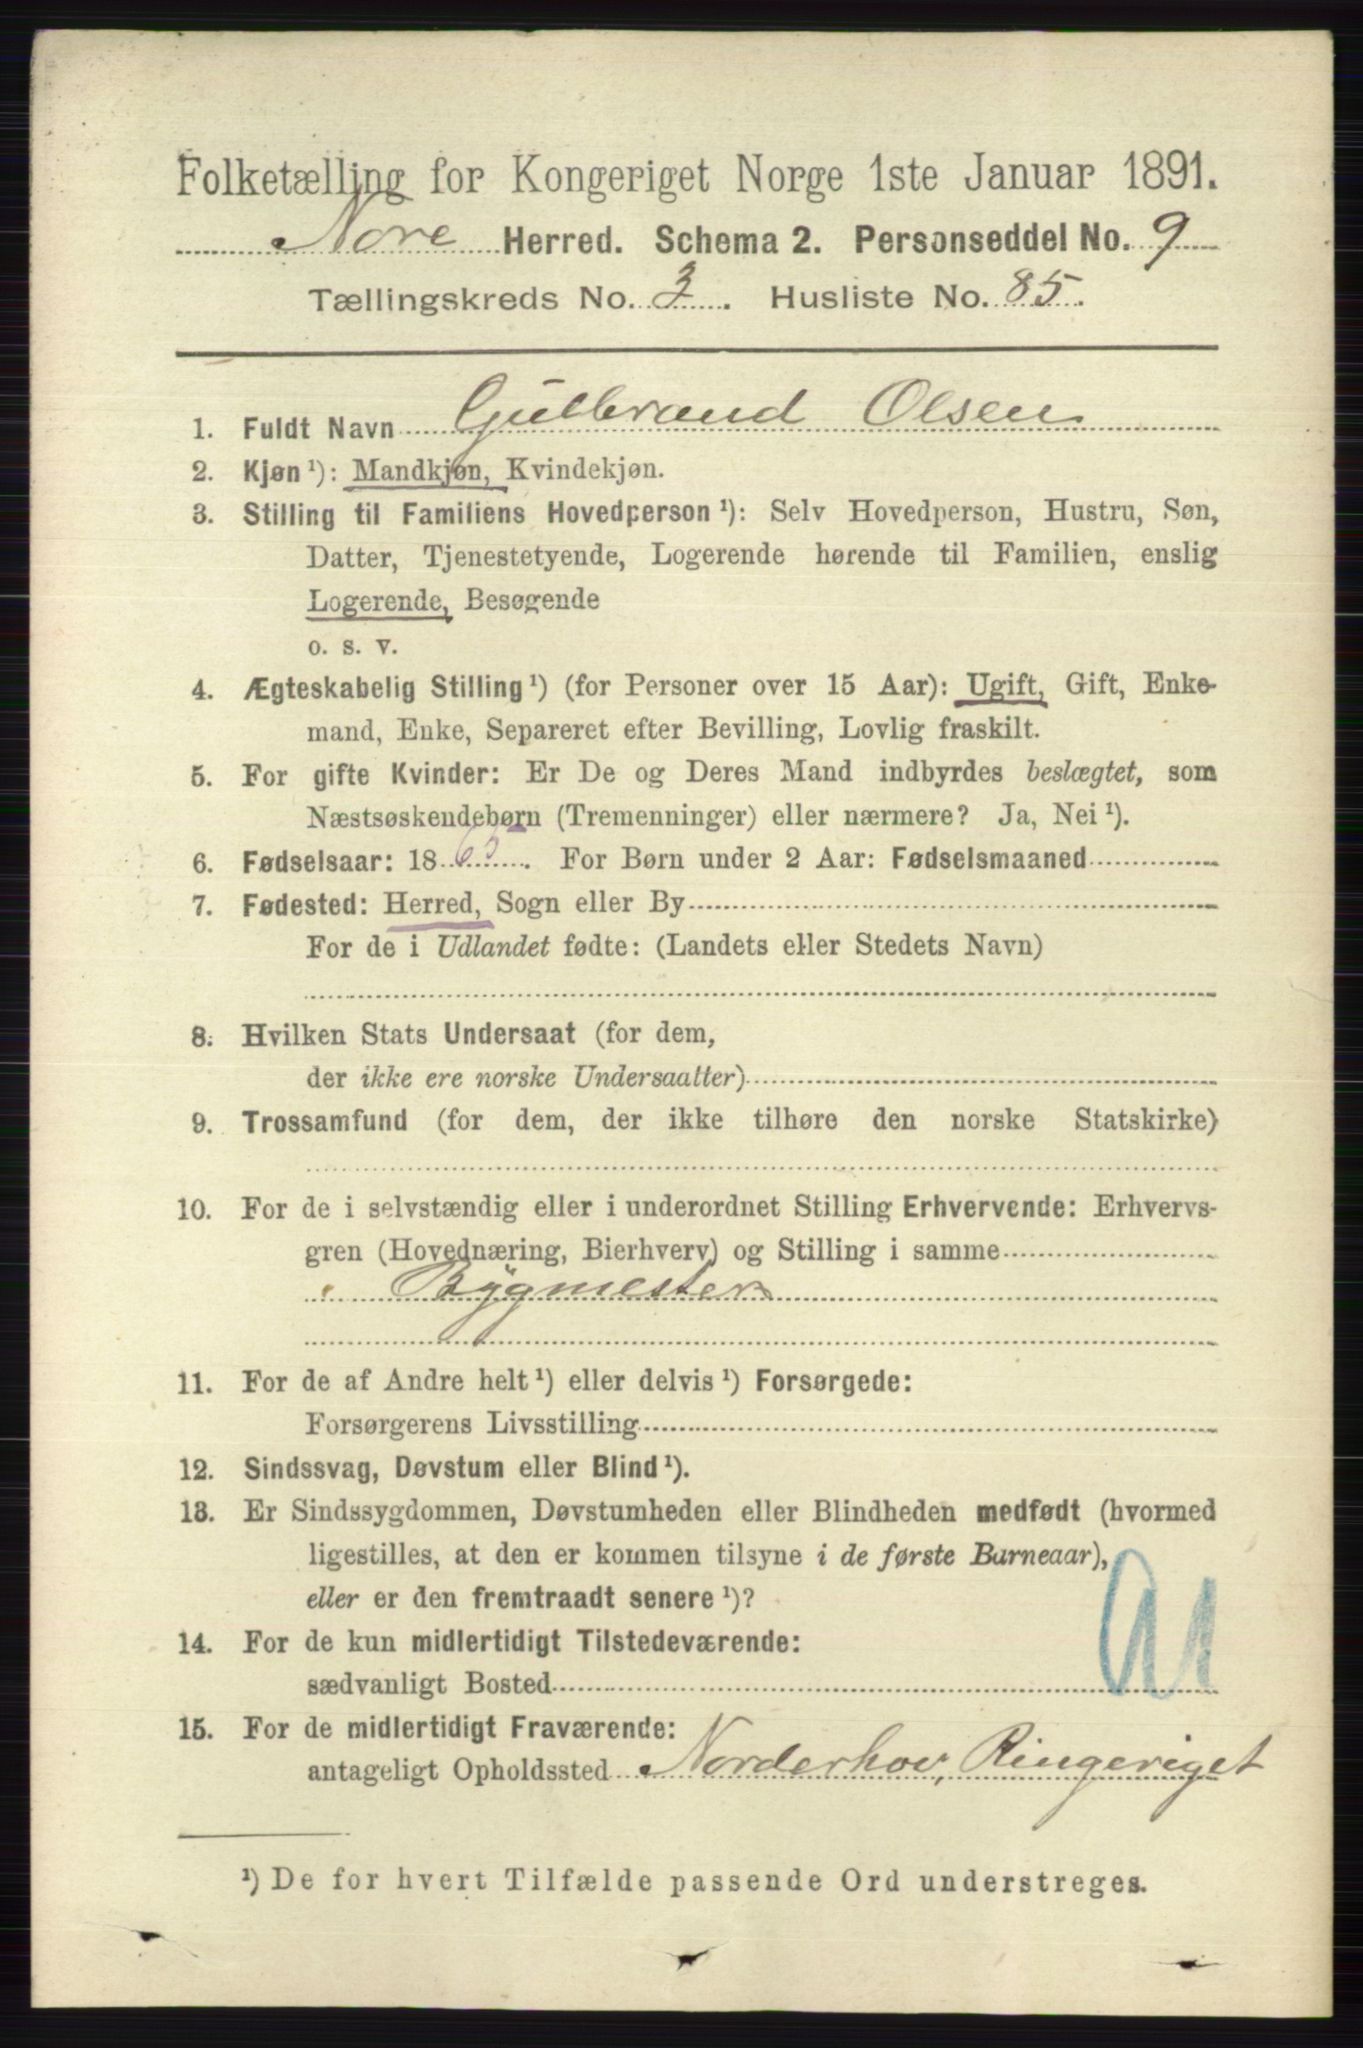 Folketælling for Kongeriget Norge 1ste Januar 1891.
Nore Herred. Schema 2. Personseddel No. 9
Tællingskreds No. 3. Husliste No. 85.
1. Fuldt Navn Gulbrand Olsen
2. Kjøn ¹): Mandkjøn, Kvindekjøn.
3. Stilling til Familiens Hovedperson ¹): Selv Hovedperson, Hustru, Søn,
Datter, Tjenestetyende, Logerende hørende til Familien, enslig
Logerende, Besøgende
o. s. v.
4. Ægteskabelig Stilling ¹) (for Personer over 15 Aar): Ugift, Gift, Enke-
mand, Enke, Separeret efter Bevilling, Lovlig fraskilt.
5. For gifte Kvinder: Er De og Deres Mand indbyrdes beslægtet, som
Næstsøskendebørn (Tremenninger) eller nærmere? Ja, Nei ¹).
6. Fødselsaar: 1865. For Børn under 2 Aar: Fødselsmaaned
7. Fødested: Herred, Sogn eller By
For de i Udlandet fødte: (Landets eller Stedets Navn)
8. Hvilken Stats Undersaat (for dem,
der ikke ere norske Undersaatter)
9. Trossamfund (for dem, der ikke tilhøre den norske Statskirke)
10. For de i selvstændig eller i underordnet Stilling Erhvervende: Erhvervs-
gren (Hovednæring, Bierhverv) og Stilling i samme
Bygmester
11. For de af Andre helt ¹) eller delvis ¹) Forsørgede:
Forsørgerens Livsstilling
12. Sindssvag, Døvstum eller Blind ¹).
13. Er Sindssygdommen, Døvstumheden eller Blindheden medfødt (hvormed
ligestilles, at den er kommen tilsyne i de første Barneaar),
eller er den fremtraadt senere ¹)?
14. For de kun midlertidigt Tilstedeværende:
sædvanligt Bosted
15. For de midlertidigt Fraværende:
antageligt Opholdssted Norderhov, Ringeriget
¹) De for hvert Tilfælde passende Ord understreges.